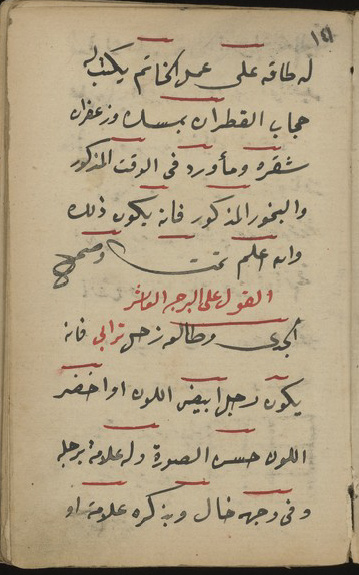 ١٤١
له طاقه على عمل الخاتم يكتب له
حجاب القطران بمسك وزعفران
شقره ومأورد فى الوقت المذكور
والبخور المذكور فانه يكون ذلك
والله اعلم تمت
القول على البرج العاشر
الجدى وطالعه زحل ترابي فانه
يكون رجل ابيض اللون او اخضر
اللون حسن الصورة وله علامة برجله
وفى وجهه خال وبذكره علامة او